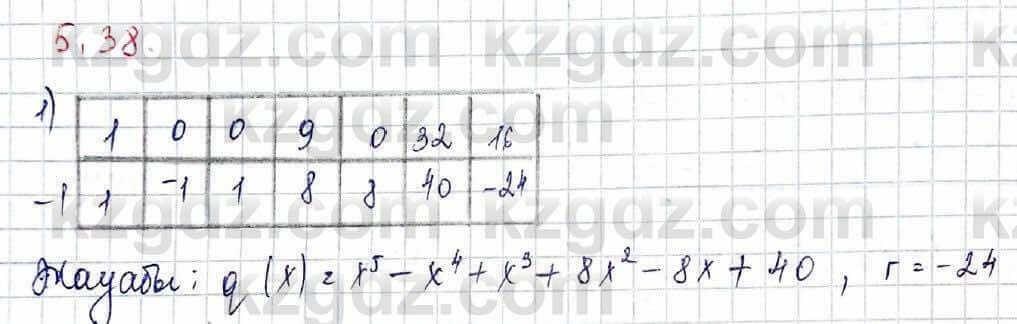 5.38.
kzgdz.com kzgdz.com
1)
1 0 0 9 0 32 16
-1 1 -1 1 8 8 40 -24
kzgdz.com kzgdz.com
Жауабы: q(x) = x⁵ - x⁴ + x³ + 8x² - 8x + 40, r = -24